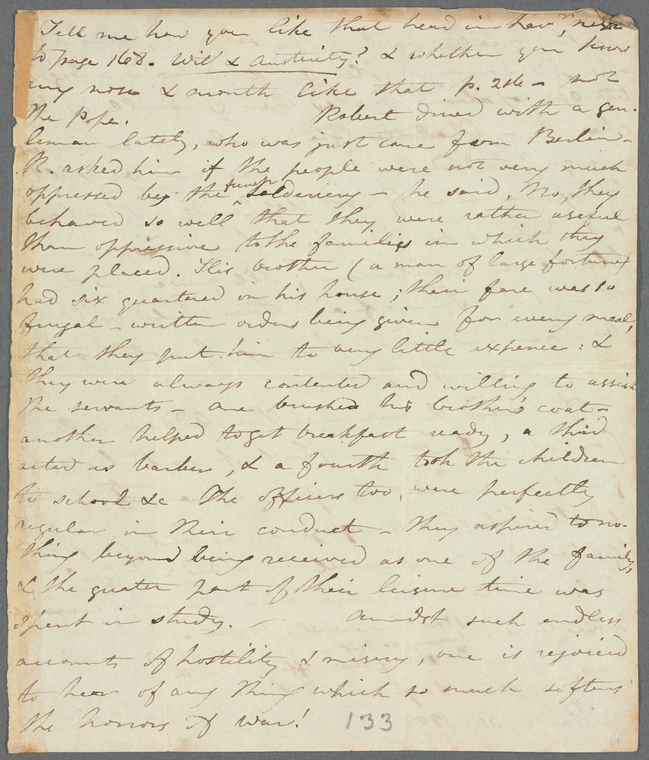 Tell me how you like that head in
to page 168. Wit & Austerity? & whether you know
any nose & mouth like that p. 216 - not
the Pope. Robert dined with a gen-
tleman lately, who was just come from Berlin -
R. asked him if the people were not very much
oppressed by the french soldiery - he said, No, they
behaved so well that they were rather useful
than oppressive to the families in which they
were placed. His brother (a man of large fortune)
had six quartered in his house; their fare was so
frugal - written orders being given for every meal,
that they put him to very little expence: &
they were always contented and willing to assist
the servants - one brushed his brother's coat -
another helped to get breakfast ready, a third
acted as barber, & a fourth took the children
to school &c The officers too, were perfectly
regular in their conduct - they aspired to no-
thing beyond being received as one of the family,
& the greater part of their leisure time was
spent in study. - Amidst such endless
accounts of hostility & misery, one is rejoiced
to hear of any thing which so much softens
the horrors of war!
133